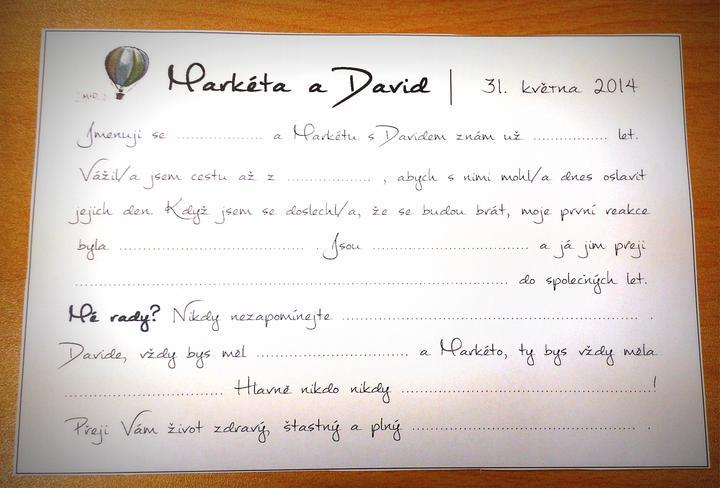 Markéta a David | 31. května 2014
Jmenuji se .................... a Markétu s Davidem znám už ................. let.
Vážil/a jsem cestu až z ................... , abych s nimi mohl/a dnes oslavit
jejich den. Když jsem se doslechl/a, že se budou brát, moje první reakce
byla .......................................... . Jsou .................................... a já jim přeji
.................................................................................................. do společných let.
Mé rady? Nikdy nezapomínejte ...................................................................... .
Davide, vždy bys měl .................................. a Markéto, ty bys vždy měla
.................................... Hlavně nikdo nikdy .........................................................!
Přeji Vám život zdravý, šťastný a plný .................................................. .